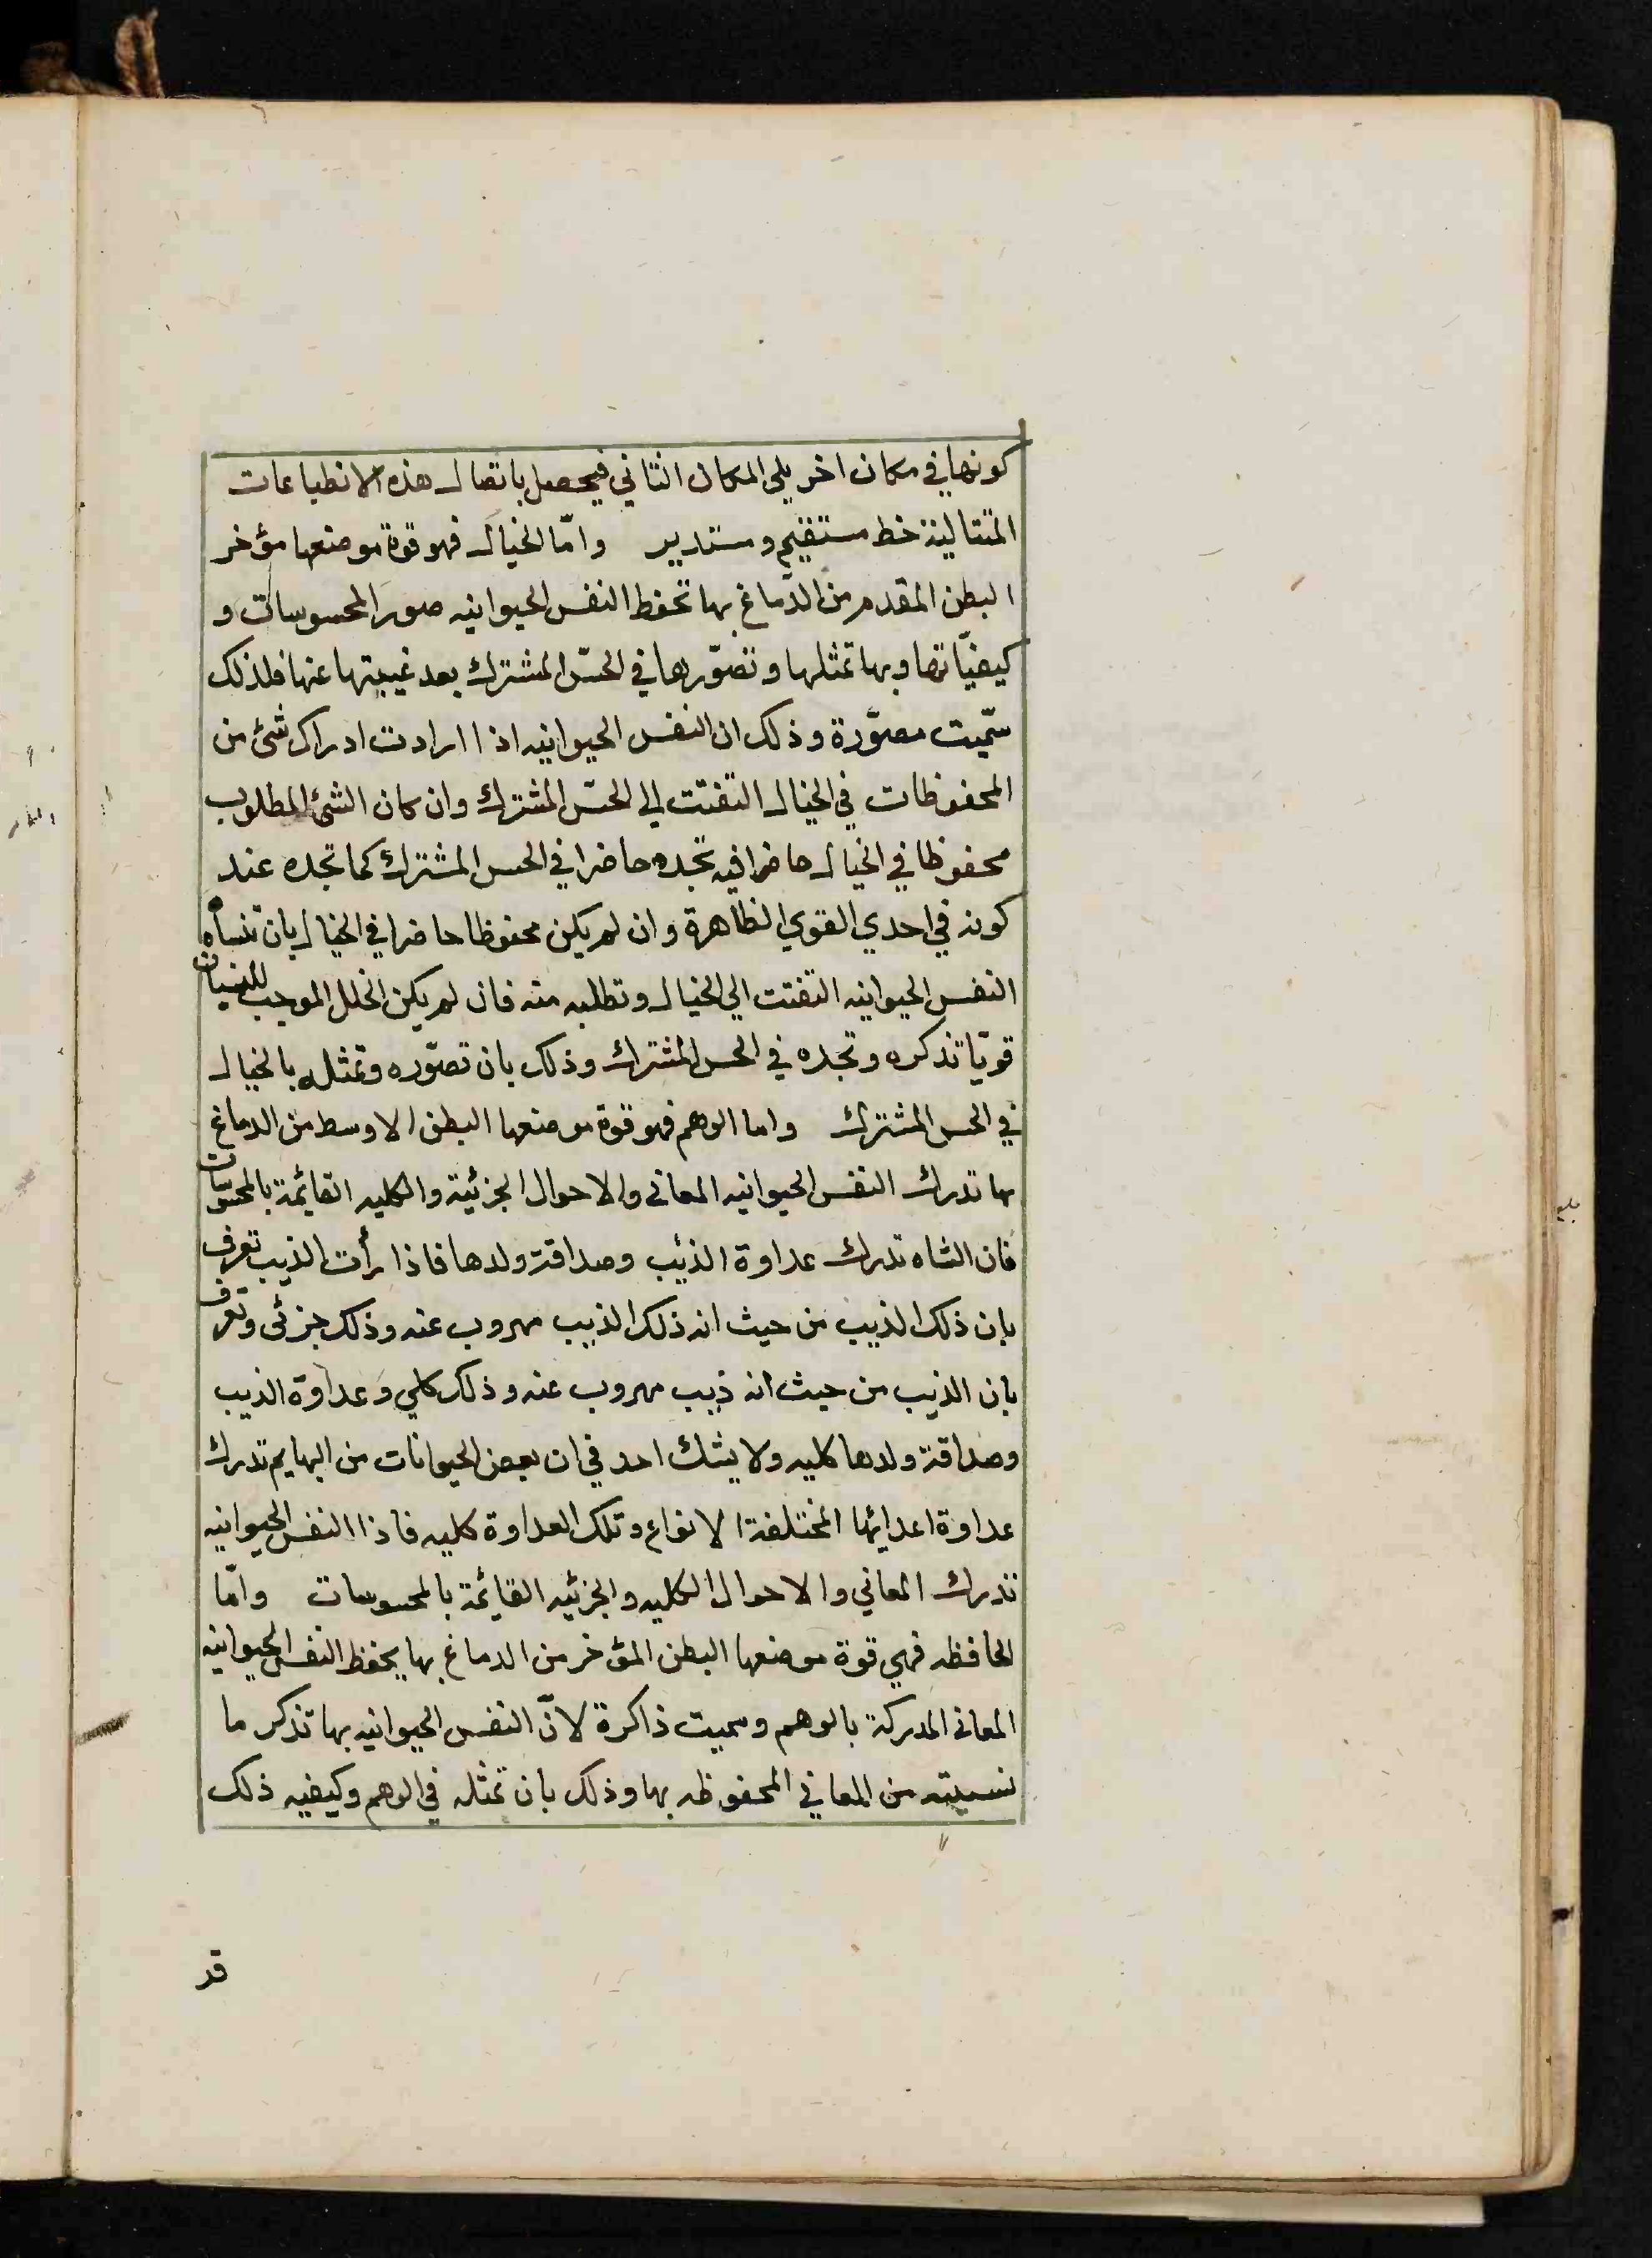 كونها في مكان اخر يلي المكان الثاني فيحصل باتصال هذه الانطباعات
المتتالية خط مستقيم و مستدير وامّا الخيال فهو قوة موضعها مؤخر
البطن المقدم من الدماغ بها تحفظ النفس الحيوانيه صور المحسوسات و
كيفيّاتها وبها تمثلها و تصوّرها في الحسّ المشترك بعد غيبتها عنها فلذلك
سّميت مصوّرة و ذلك ان النفس الحيوانيه اذا ارادت ادراك شئ من
المحفوظات في الخيال التفتت الى الحسّ المشترك وان كان الشئ المطلوب
محفوظا في الخيال حاضرا فيه تجده حاضرا في الحس المشترك كما تجده عند
كونه في احدي القوي الظاهرة و ان لم يكن محفوظا حاضرا في الخيال بان تنساه
النفس الحيوانيه التفتت الي الخيال و تطلبه منه فان لم يكن الخلل الموجب للنسيان
قويّا تذكره و تجده في الحس المشترك وذلك بان تصوّره وتمثله بالخيال
في الحس المشترك واما الوهم فهو قوة موضعها البطن الاوسط من الدماغ
بها تدرك النفس الحيوانيه المعانى والاحوال الجزئية والكليه القائمة بالمحسوسات
فان الشاه تدرك عداوة الذئب وصداقة ولدها فاذا رأت الذيب تعرف
بان ذلك الذيب من حيث انه ذلك الذيب مهروب عنه وذلك جزئى وتعرف
بان الذيب من حيث انه ذيب مهروب عنه و ذلك كلي و عداوة الذيب
وصداقة ولدها كليه ولا يشك احد في ان بعض الحيوانات من البهايم تدرك
عداوة اعدائها المختلفة الانواع و تلك العداوة كليه فاذا النفس الحيوانيه
تدرك المعاني والاحوال الكليه والجزئيه القائمة بالمحسوسات وامّا
الحافظه فهي قوة موضعها البطن المؤخر من الدماغ بها يحفظ النفس الحيوانيه
المعانى المدركة بالوهم وسميت ذاكرة لانّ النفس الحيوانيه بها تذكر ما
نسيته من المعاني المحفوظه بها وذلك بان تمثله في الوهم وكيفيه ذلك
قد